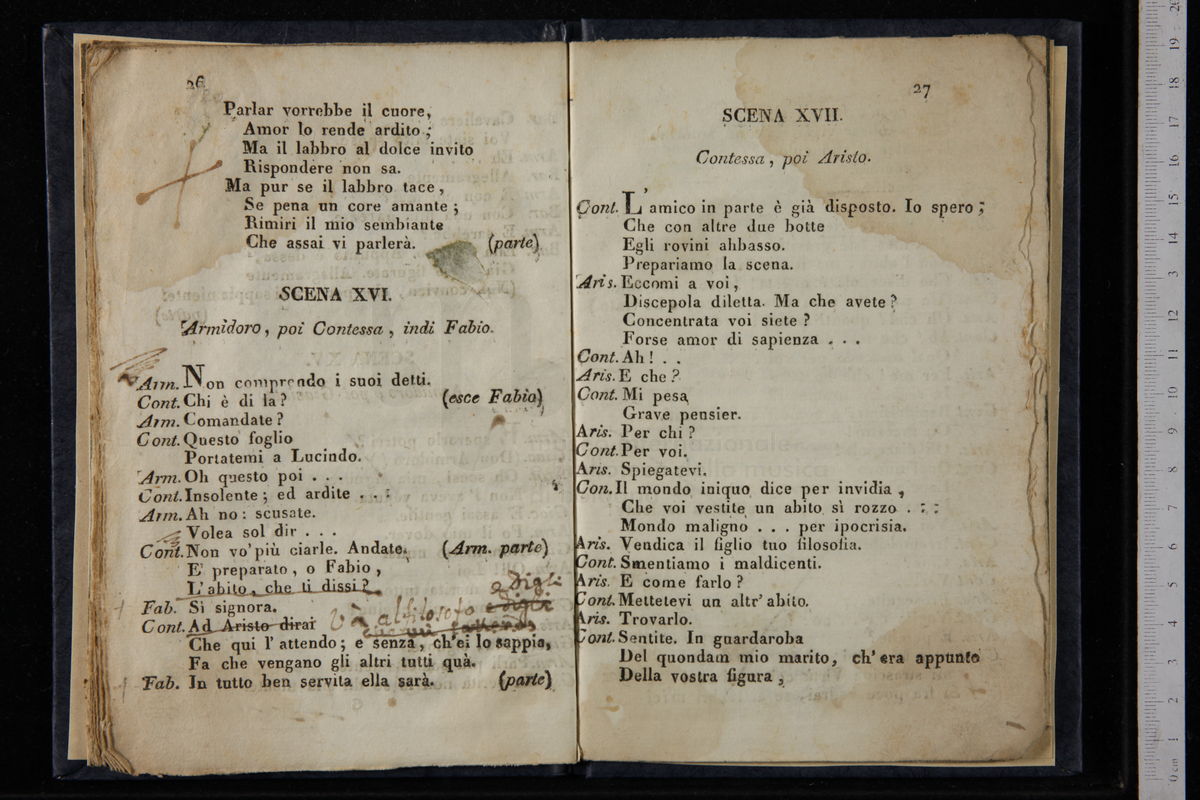 26
Parlar vorrebbe il cuore,
Amor lo rende ardito;
Ma il labbro al dolce invito
Rispondere non sa.
Ma pur se il labbro tace,
Se pena un core amante;
Rimiri il mio sembiante
Che assai vi parlerà. (parte)
SCENA XVI.
Armidoro, poi Contessa, indi Fabio.
Arm. Non comprendo i suoi detti.
Cont. Chi è di la? (esce Fabio)
Arm. Comandate?
Cont. Questo foglio
Portatemi a Lucindo.
Arm. Oh questo poi . . .
Cont. Insolente; ed ardite . . :
Arm. Ah no: scusate.
Volea sol dir . . .
Cont. Non vo' più ciarle. Andate. (Arm. parte)
E' preparato, o Fabio,
L'abito, che ti dissi?
e Digli
Fab. Sì signora.
Cont. Ad Aristo dirai Và al filosofo e digli
Che qui l'attendo; e senza, ch'ei lo sappia,
Fa che vengano gli altri tutti quà.
Fab. In tutto ben servita ella sarà. (parte)
27
SCENA XVII.
Contessa, poi Aristo.
Cont. L'amico in parte è già disposto. Io spero;
Che con altre due botte
Egli rovini abbasso.
Prepariamo la scena.
Aris. Eccomi a voi,
Discepola diletta. Ma che avete?
Concentrata voi siete?
Forse amor di sapienza . . .
Cont. Ah! . .
Aris. E che?
Cont. Mi pesa
Grave pensier.
Aris. Per chi?
Cont. Per voi.
Aris. Spiegatevi.
Con. Il mondo iniquo dice per invidia,
Che voi vestite un abito sì rozzo . : :
Mondo maligno . . . per ipocrisia.
Aris. Vendica il figlio tuo filosofia.
Cont. Smentiamo i maldicenti.
Aris. E come farlo?
Cont. Mettetevi un altr' abito.
Aris. Trovarlo.
Cont. Sentite. In guardaroba
Del quondam mio marito, ch'era appunto
Della vostra figura,